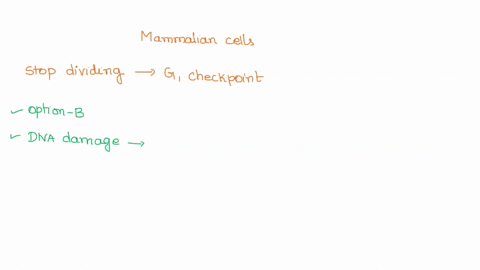 Mammalian cells
Stop dividing → G₁ checkpoint
✓ option-B
✓ DNA damage →